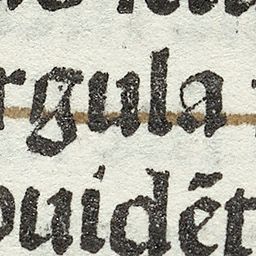 rgula
ouidēt